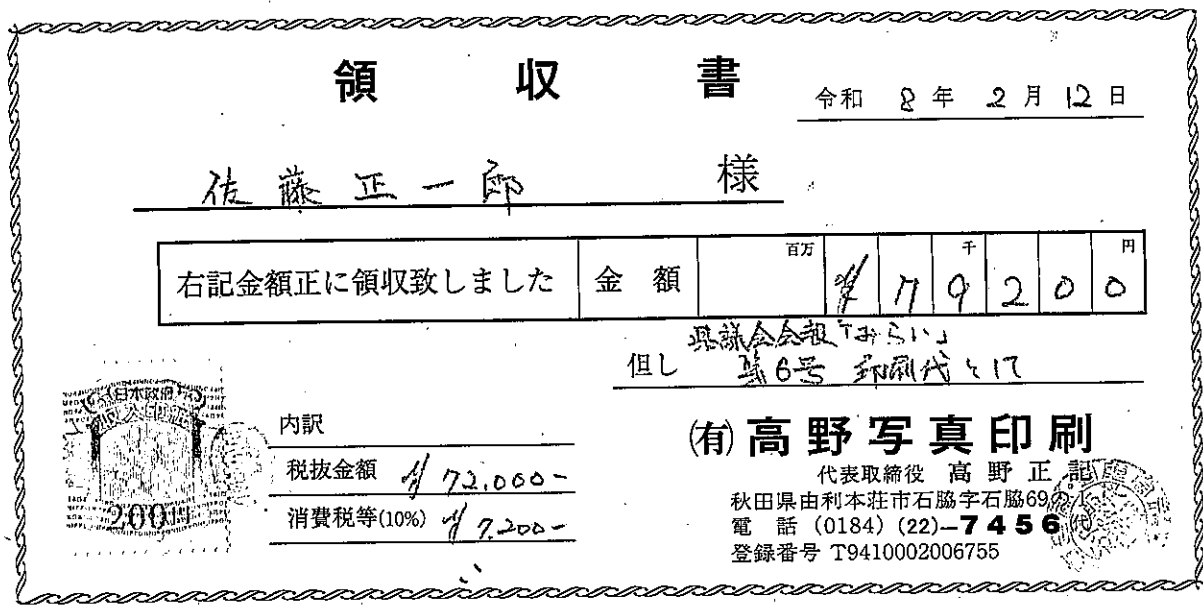 領収書
令和 8年 2月 12日
佐藤正一郎 様
右記金額正に領収致しました 金額 百万 千 円 ¥79200
県議会会報「みらい」
但し 第6号 印刷代として
日本政府
収入印紙
200円
内訳
税抜金額 ¥72,000-
消費税等(10%) ¥7,200-
(有)高野写真印刷
代表取締役 高野正記
秋田県由利本荘市石脇字石脇69の1
電話 (0184) (22)-7456(代)
登録番号 T9410002006755